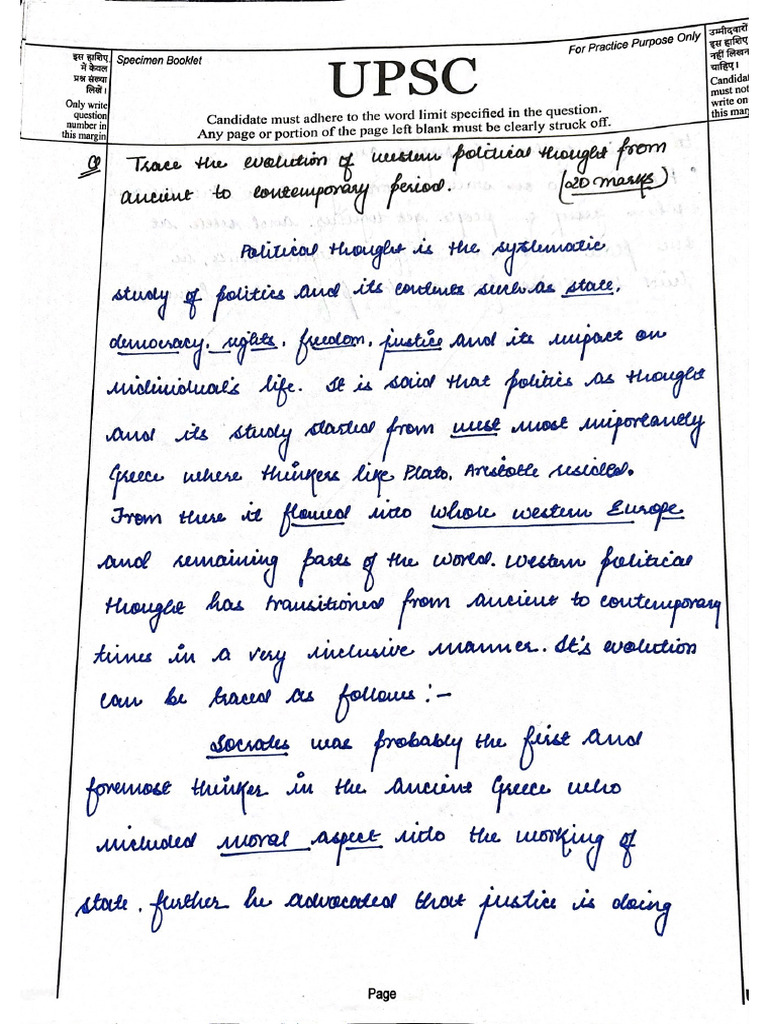 इस हाशिए
में केवल
प्रश्न संख्या
लिखें।
Only write
question
number in
this margin
Specimen Booklet
UPSC
For Practice Purpose Only
Candidate must adhere to the word limit specified in the question.
Any page or portion of the page left blank must be clearly struck off.
उम्मीदवारों
इस हाशिए
नहीं लिखन
चाहिए।
Candidat
must not
write on
this mar
Q Trace the evolution of western political thought from
ancient to contemporary period. (20 marks)
Political thought is the systematic
study of politics and its contents such as state,
democracy, rights, freedom, justice and its impact on
individual's life. It is said that politics as thought
and its study started from west most importantly
Greece where thinkers like Plato, Aristotle resided.
From there it flowed into whole western Europe
and remaining parts of the world. Western political
thought has transitioned from ancient to contemporary
times in a very inclusive manner. It's evolution
can be traced as follows :-
Socrates was probably the first and
foremost thinker in the ancient Greece who
included moral aspect into the working of
state. further he advocated that justice is doing
Page